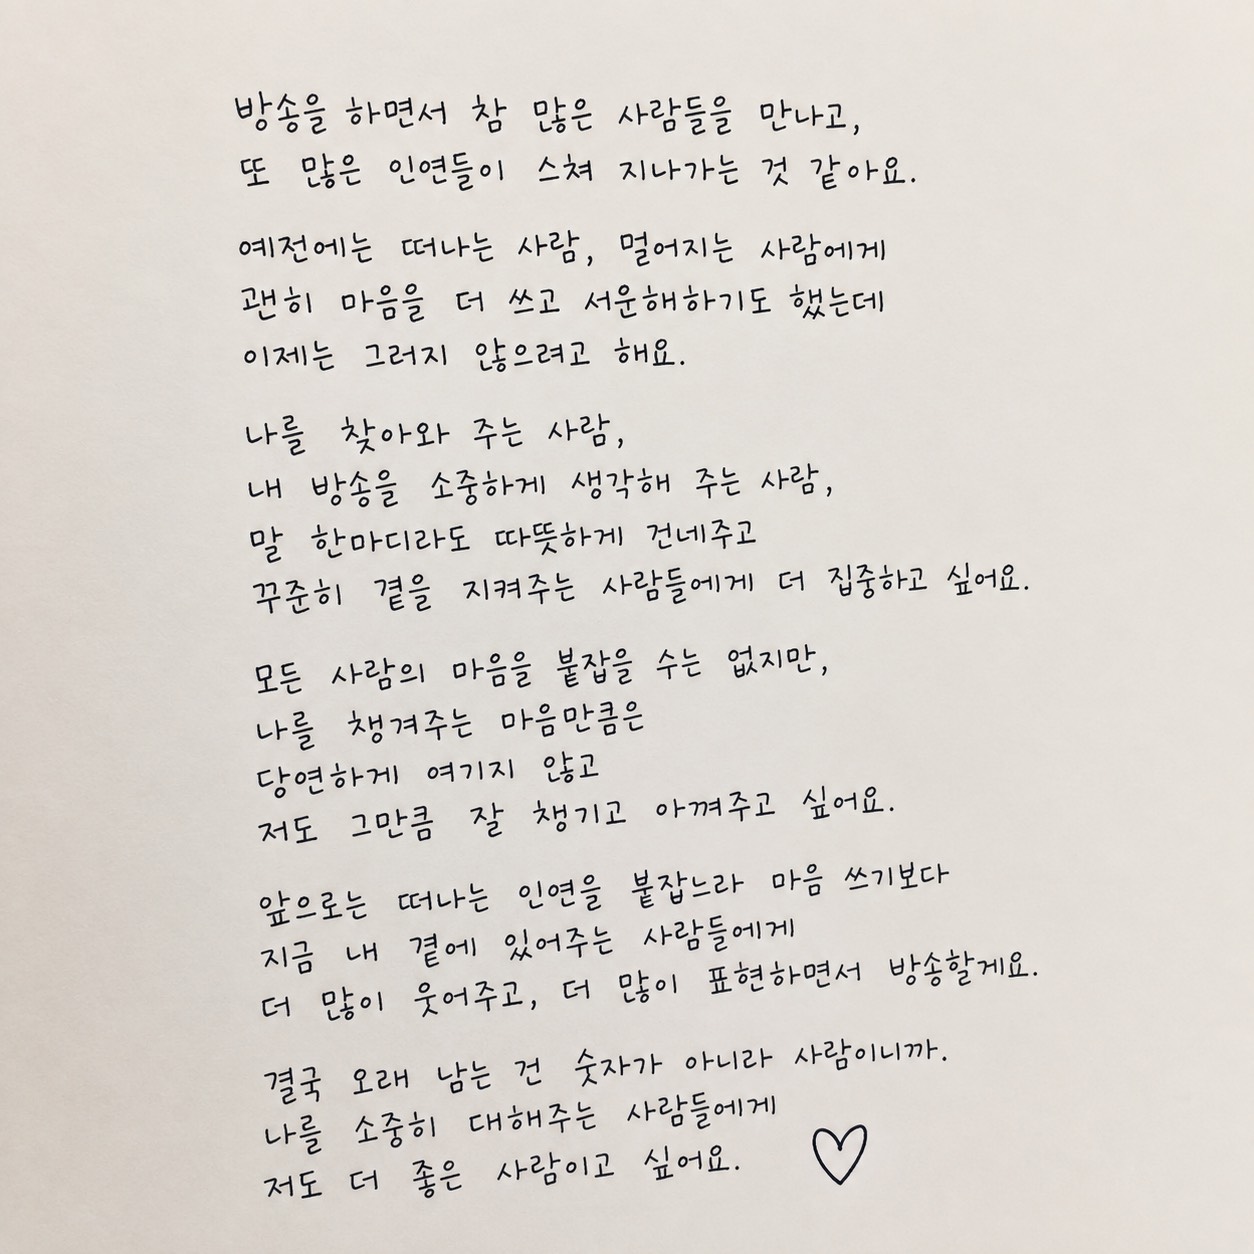 방송을 하면서 참 많은 사람들을 만나고,
또 많은 인연들이 스쳐 지나가는 것 같아요.
예전에는 떠나는 사람, 멀어지는 사람에게
괜히 마음을 더 쓰고 서운해하기도 했는데
이제는 그러지 않으려고 해요.
나를 찾아와 주는 사람,
내 방송을 소중하게 생각해 주는 사람,
말 한마디라도 따뜻하게 건네주고
꾸준히 곁을 지켜주는 사람들에게 더 집중하고 싶어요.
모든 사람의 마음을 붙잡을 수는 없지만,
나를 챙겨주는 마음만큼은
당연하게 여기지 않고
저도 그만큼 잘 챙기고 아껴주고 싶어요.
앞으로는 떠나는 인연을 붙잡느라 마음 쓰기보다
지금 내 곁에 있어주는 사람들에게
더 많이 웃어주고, 더 많이 표현하면서 방송할게요.
결국 오래 남는 건 숫자가 아니라 사람이니까.
나를 소중히 대해주는 사람들에게
저도 더 좋은 사람이고 싶어요.